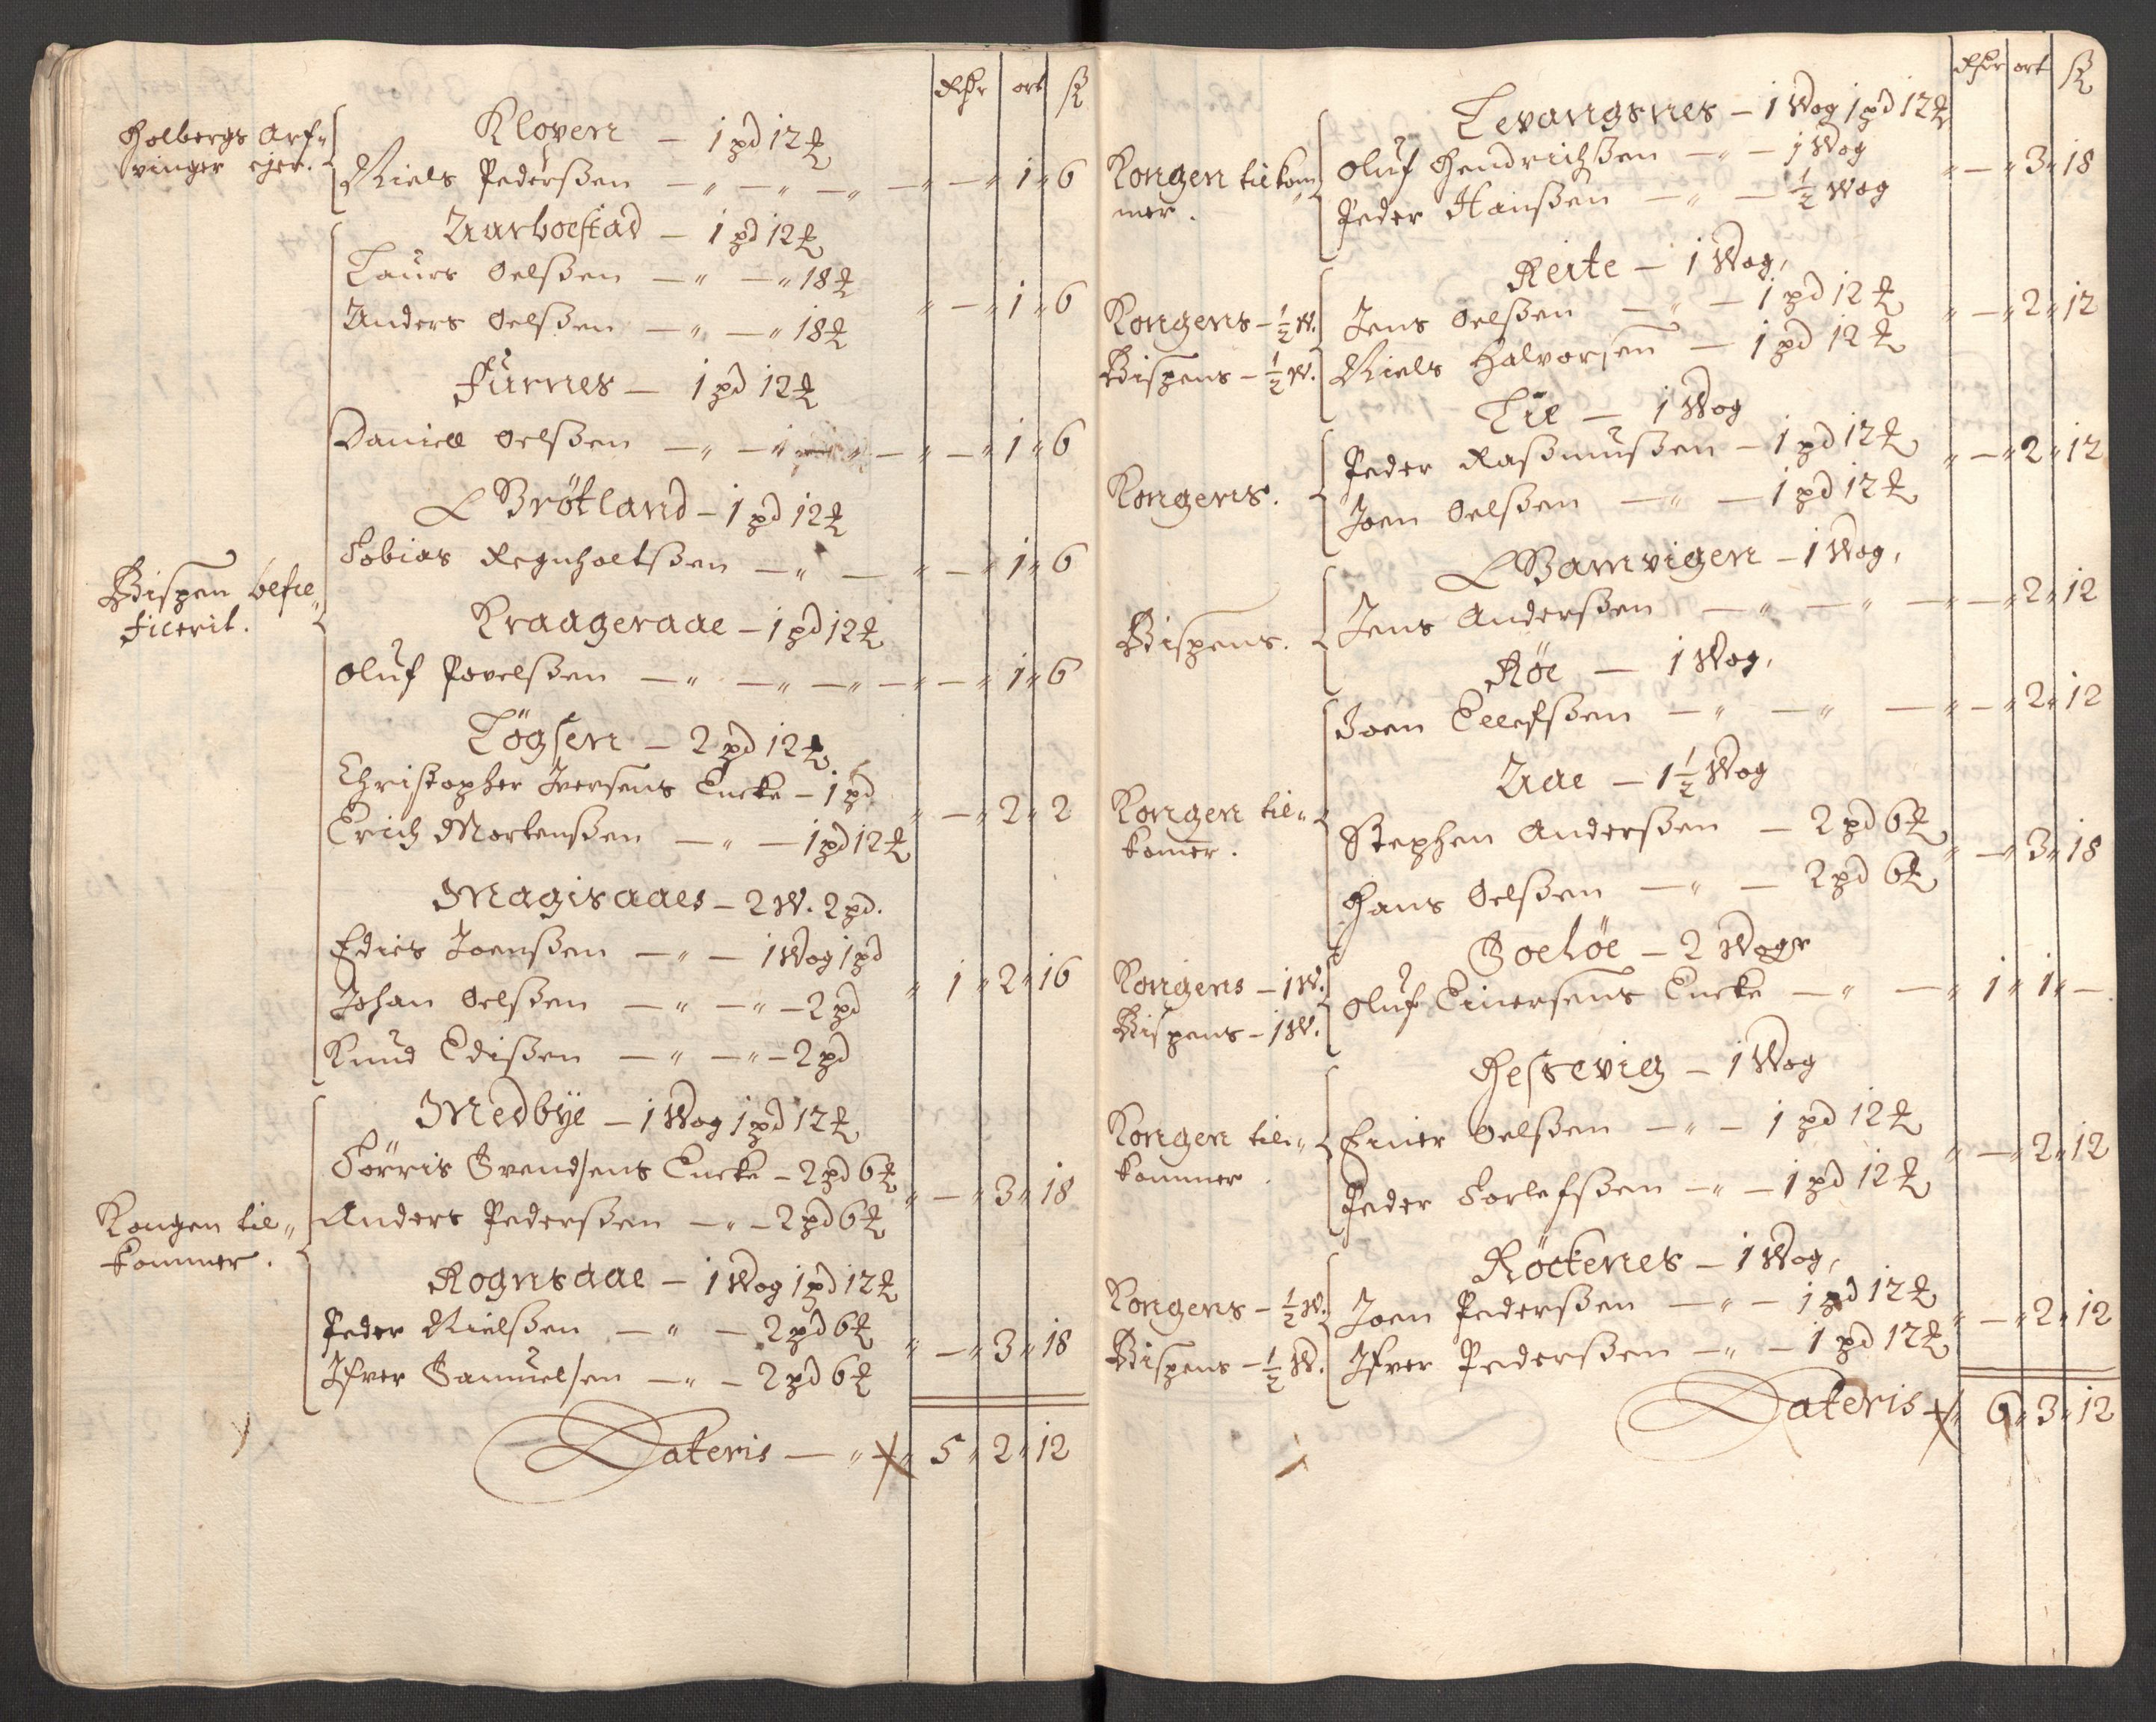 Rdr ort ß
Holbergs Arf-
vinger ejer.
Kloven — 1 pd 12 ℔
Niels Pederßen — „ — „ — „ — „ — „ 1 „ 6
Aarboestad — 1 pd 12 ℔
Laurs Oelßen — „ — „ 18 ℔
„ — „ 1 „ 6
Anders Oelßen — „ — „ 18 ℔
Furnes — 1 pd 12 ℔
Daniell Oelßen — „ — „ — „ — „ 1 „ 6
Brötland — 1 pd 12 ℔
Tobias Regnholtßen — „ — „ — „ 1 „ 6
Bispen befie-
ficerit.
Kraageraae — 1 pd 12 ℔
Oluf Povelßen — „ — „ — „ — „ — „ 1 „ 6
Lögsen — 2 pd 12 ℔
Christopher Iversens Encke — 1 pd
„ — „ 2 „ 2
Erich Mortenßen — „ — 1 pd 12 ℔
Magisaaes — 2 W. 2 pd.
Edies Joenßen — „ — 1 Wog 1 pd
„ 1 „ 2 „ 16
Johan Oelßen — „ — „ — 2 pd
Knud Edißen — „ — „ — 2 pd
Medbÿe — 1 Wog 1 pd 12 ℔
Törris Svendsens Encke — 2 pd 6 ℔
„ — „ 3 „ 18
Kongen til-
kommer.
Anders Pederßen — „ — 2 pd 6 ℔
Rognsaae — 1 Wog 1 pd 12 ℔
Peder Nielßen — „ — 2 pd 6 ℔
„ — „ 3 „ 18
Ifver Samuelsen — „ — 2 pd 6 ℔
Lateris — „ 5 „ 2 „ 12
Rdr ort ß
Levangsnes — 1 Wog 1 pd 12 ℔
Kongen tilkom-
mer.
Oluf Hendrichßen — „ — 1 Wog
„ — „ 3 „ 18
Peder Hanßen — „ — ½ Wog
Reite — 1 Wog,
Kongens — ½ W.
Jens Oelßen — „ — 1 pd 12 ℔
„ — „ 2 „ 12
Bispens — ½ W.
Niels Halvorsen — 1 pd 12 ℔
Lie — 1 Wog
Kongens.
Peder Raßmußen — 1 pd 12 ℔
„ — „ 2 „ 12
Joen Oelßen — „ — 1 pd 12 ℔
Bamvigen — 1 Wog,
Bispens.
Jens Anderßen — „ — „ — „ — „ 2 „ 12
Röe — 1 Wog,
Joen Ellefßen — „ — „ — „ — „ 2 „ 12
Kongen til-
komer.
Aae — 1½ Wog
Stephen Anderßen — 2 pd 6 ℔
„ — „ 3 „ 18
Hans Oelßen — „ — 2 pd 6 ℔
Soelöe — 2 Woger
Kongens — 1 W.
Oluf Einersens Encke — „ — „ 1 „ 1 „ —
Bispens — 1 W.
Hessevig — 1 Wog
Kongen til-
kommer
Einer Oelßen — „ — 1 pd 12 ℔
„ — „ 2 „ 12
Peder Torlefßen — „ — 1 pd 12 ℔
Röckenes — 1 Wog,
Kongens — ½ W.
Joen Pederßen — „ — 1 pd 12 ℔
„ — „ 2 „ 12
Bispens — ½ W.
Ifver Pederßen — „ — 1 pd 12 ℔
Lateris „ 6 „ 3 „ 12